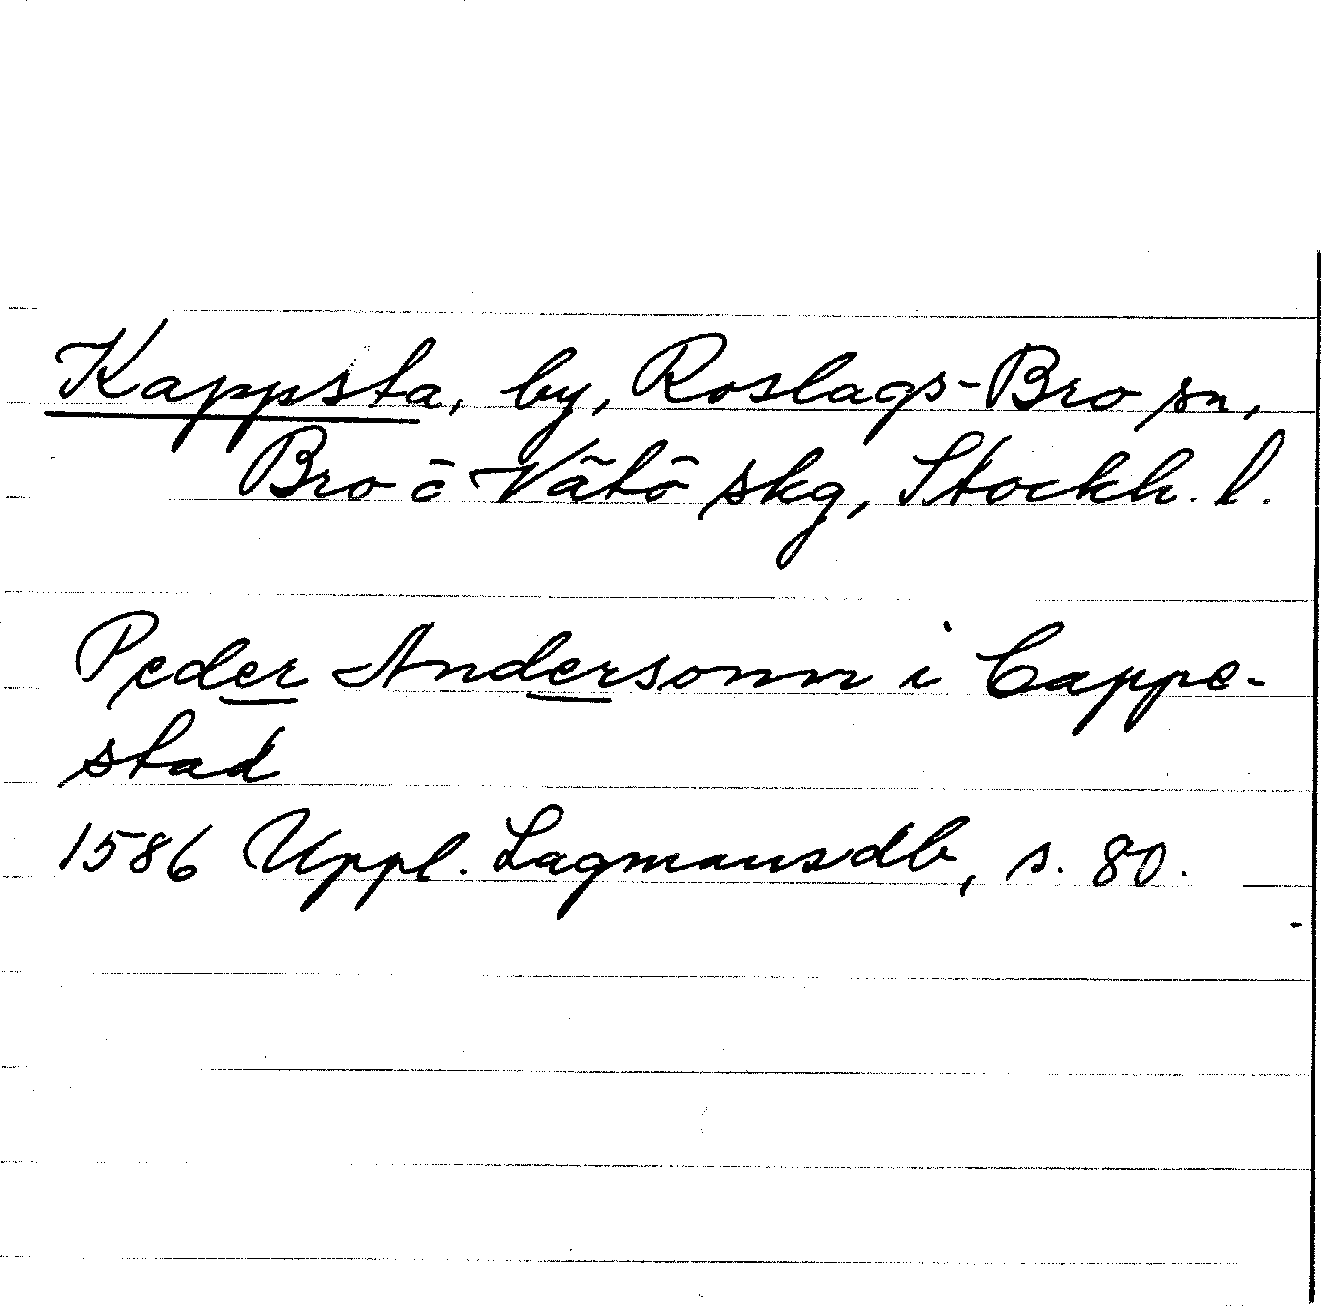 Kappsta, by, Roslags-Bro sn,
Bro o Vätö skg, Stockh. l.
Peder Andersonn i Cappe-
stad
1586 Uppl. Lagmansdb, s. 80.